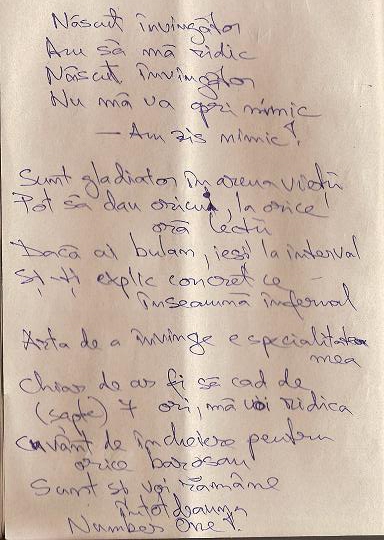 Născut învingător
Am să mă ridic
Născut învingător
Nu mă va opri nimic
— Am zis nimic!
Sunt gladiator în arena vieții
Pot să dau oricui, la orice
oră lecții
Dacă ai bulan, ieși la interval
Și-ți explic concret ce
înseamnă infernal
Arta de a învinge e specialitatea
mea
Chiar de ar fi să cad de
(șapte) 7 ori, mă voi ridica
Cuvânt de încheiere pentru
orice barosan
Sunt și voi rămâne
întotdeauna
Number One!